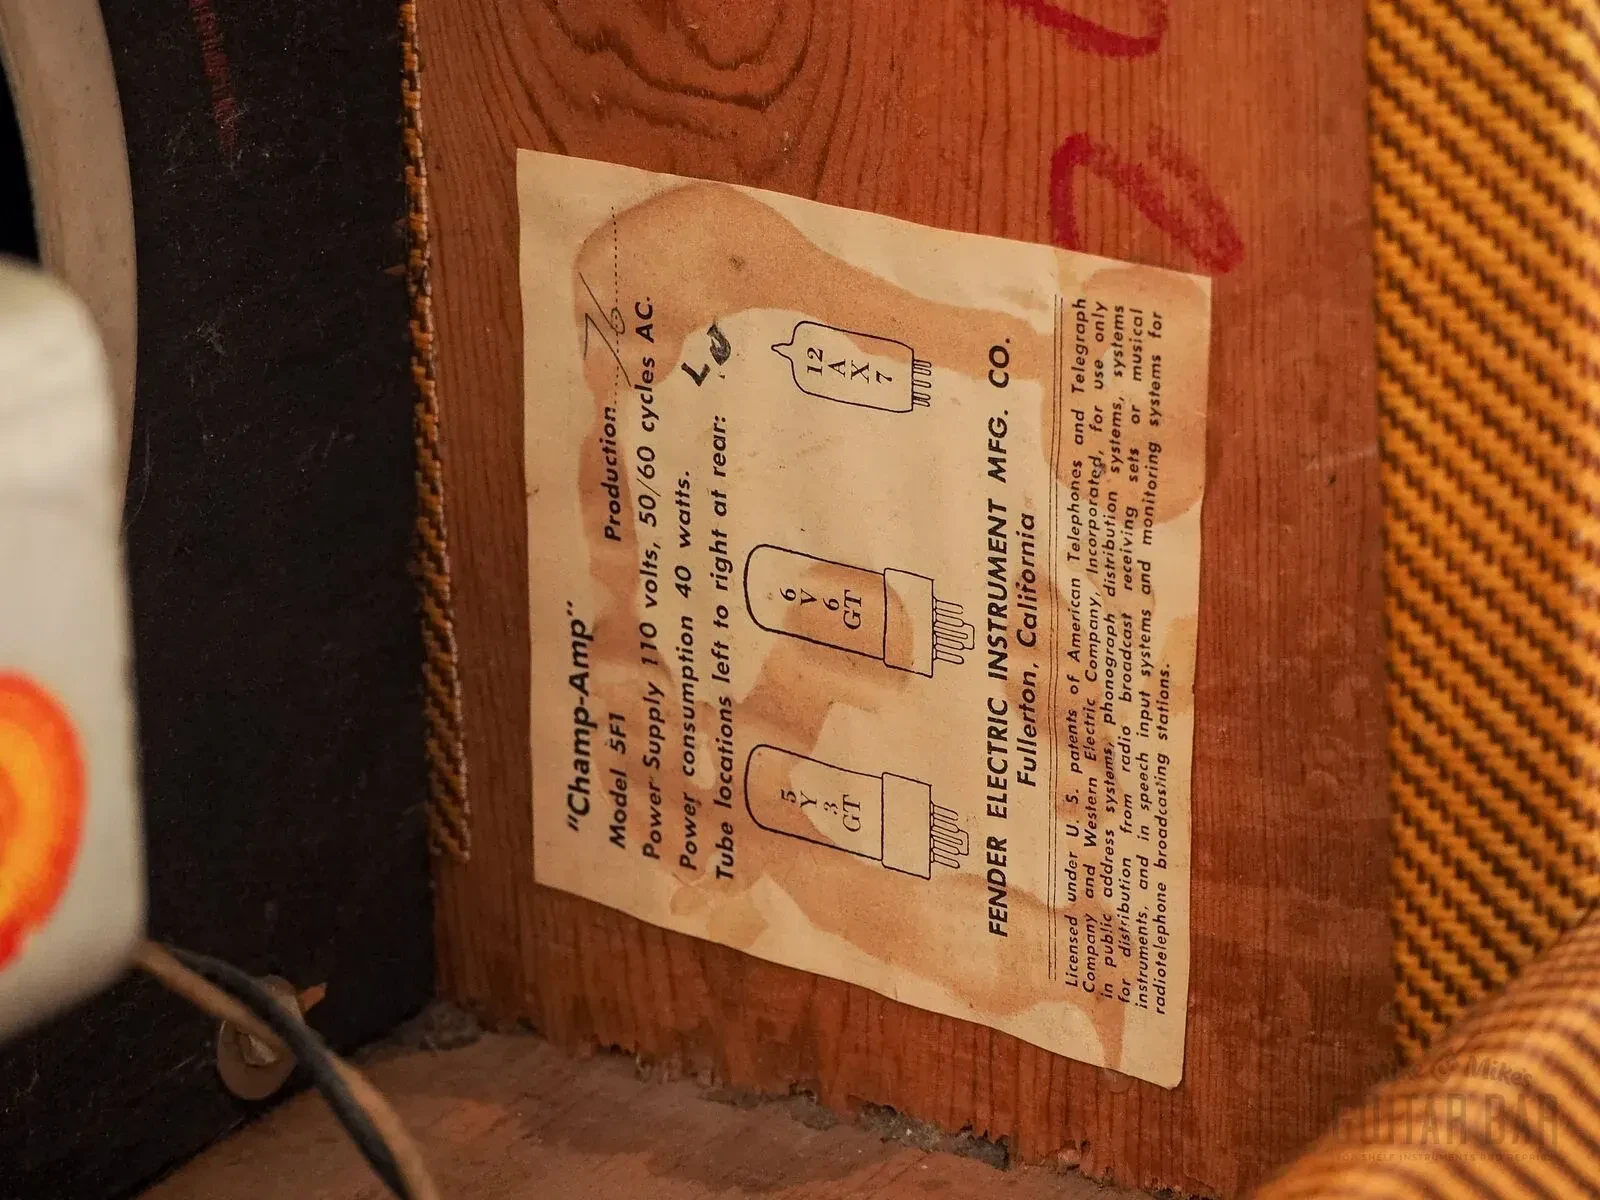 "Champ-Amp"
Model 5F1 Production 76
Power Supply 110 volts, 50/60 cycles AC.
Power consumption 40 watts.
Tube locations left to right at rear:
5
Y
3
GT
6
V
6
GT
12
A
X
7
FENDER ELECTRIC INSTRUMENT MFG. CO.
Fullerton, California
Licensed under U. S. patents of American Telephones and Telegraph
Company and Western Electric Company, Incorporated, for use only
in public address systems, phonograph distribution systems, systems
for distribution from radio broadcast receiving sets or musical
instruments, and in speech input systems and monitoring systems for
radiotelephone broadcasting stations.
Mike & Mike's
GUITAR BAR